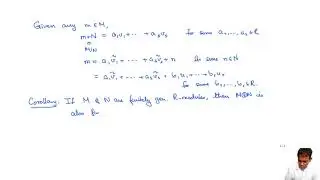 Given any m ∈ M,
m+N = a₁v₁ + ⋯ + aₛvₛ for some a₁,…,aₛ ∈ R
M/N
m = a₁ṽ₁ + ⋯ + aₛṽₛ + n for some n ∈ N
= a₁ṽ₁ + ⋯ + aₛṽₛ + b₁u₁ + ⋯ + bᵣuᵣ
for some b₁,…,bᵣ ∈ R.
Corollary: If M & N are finitely gen. R-modules, then M⊕N is
also fin